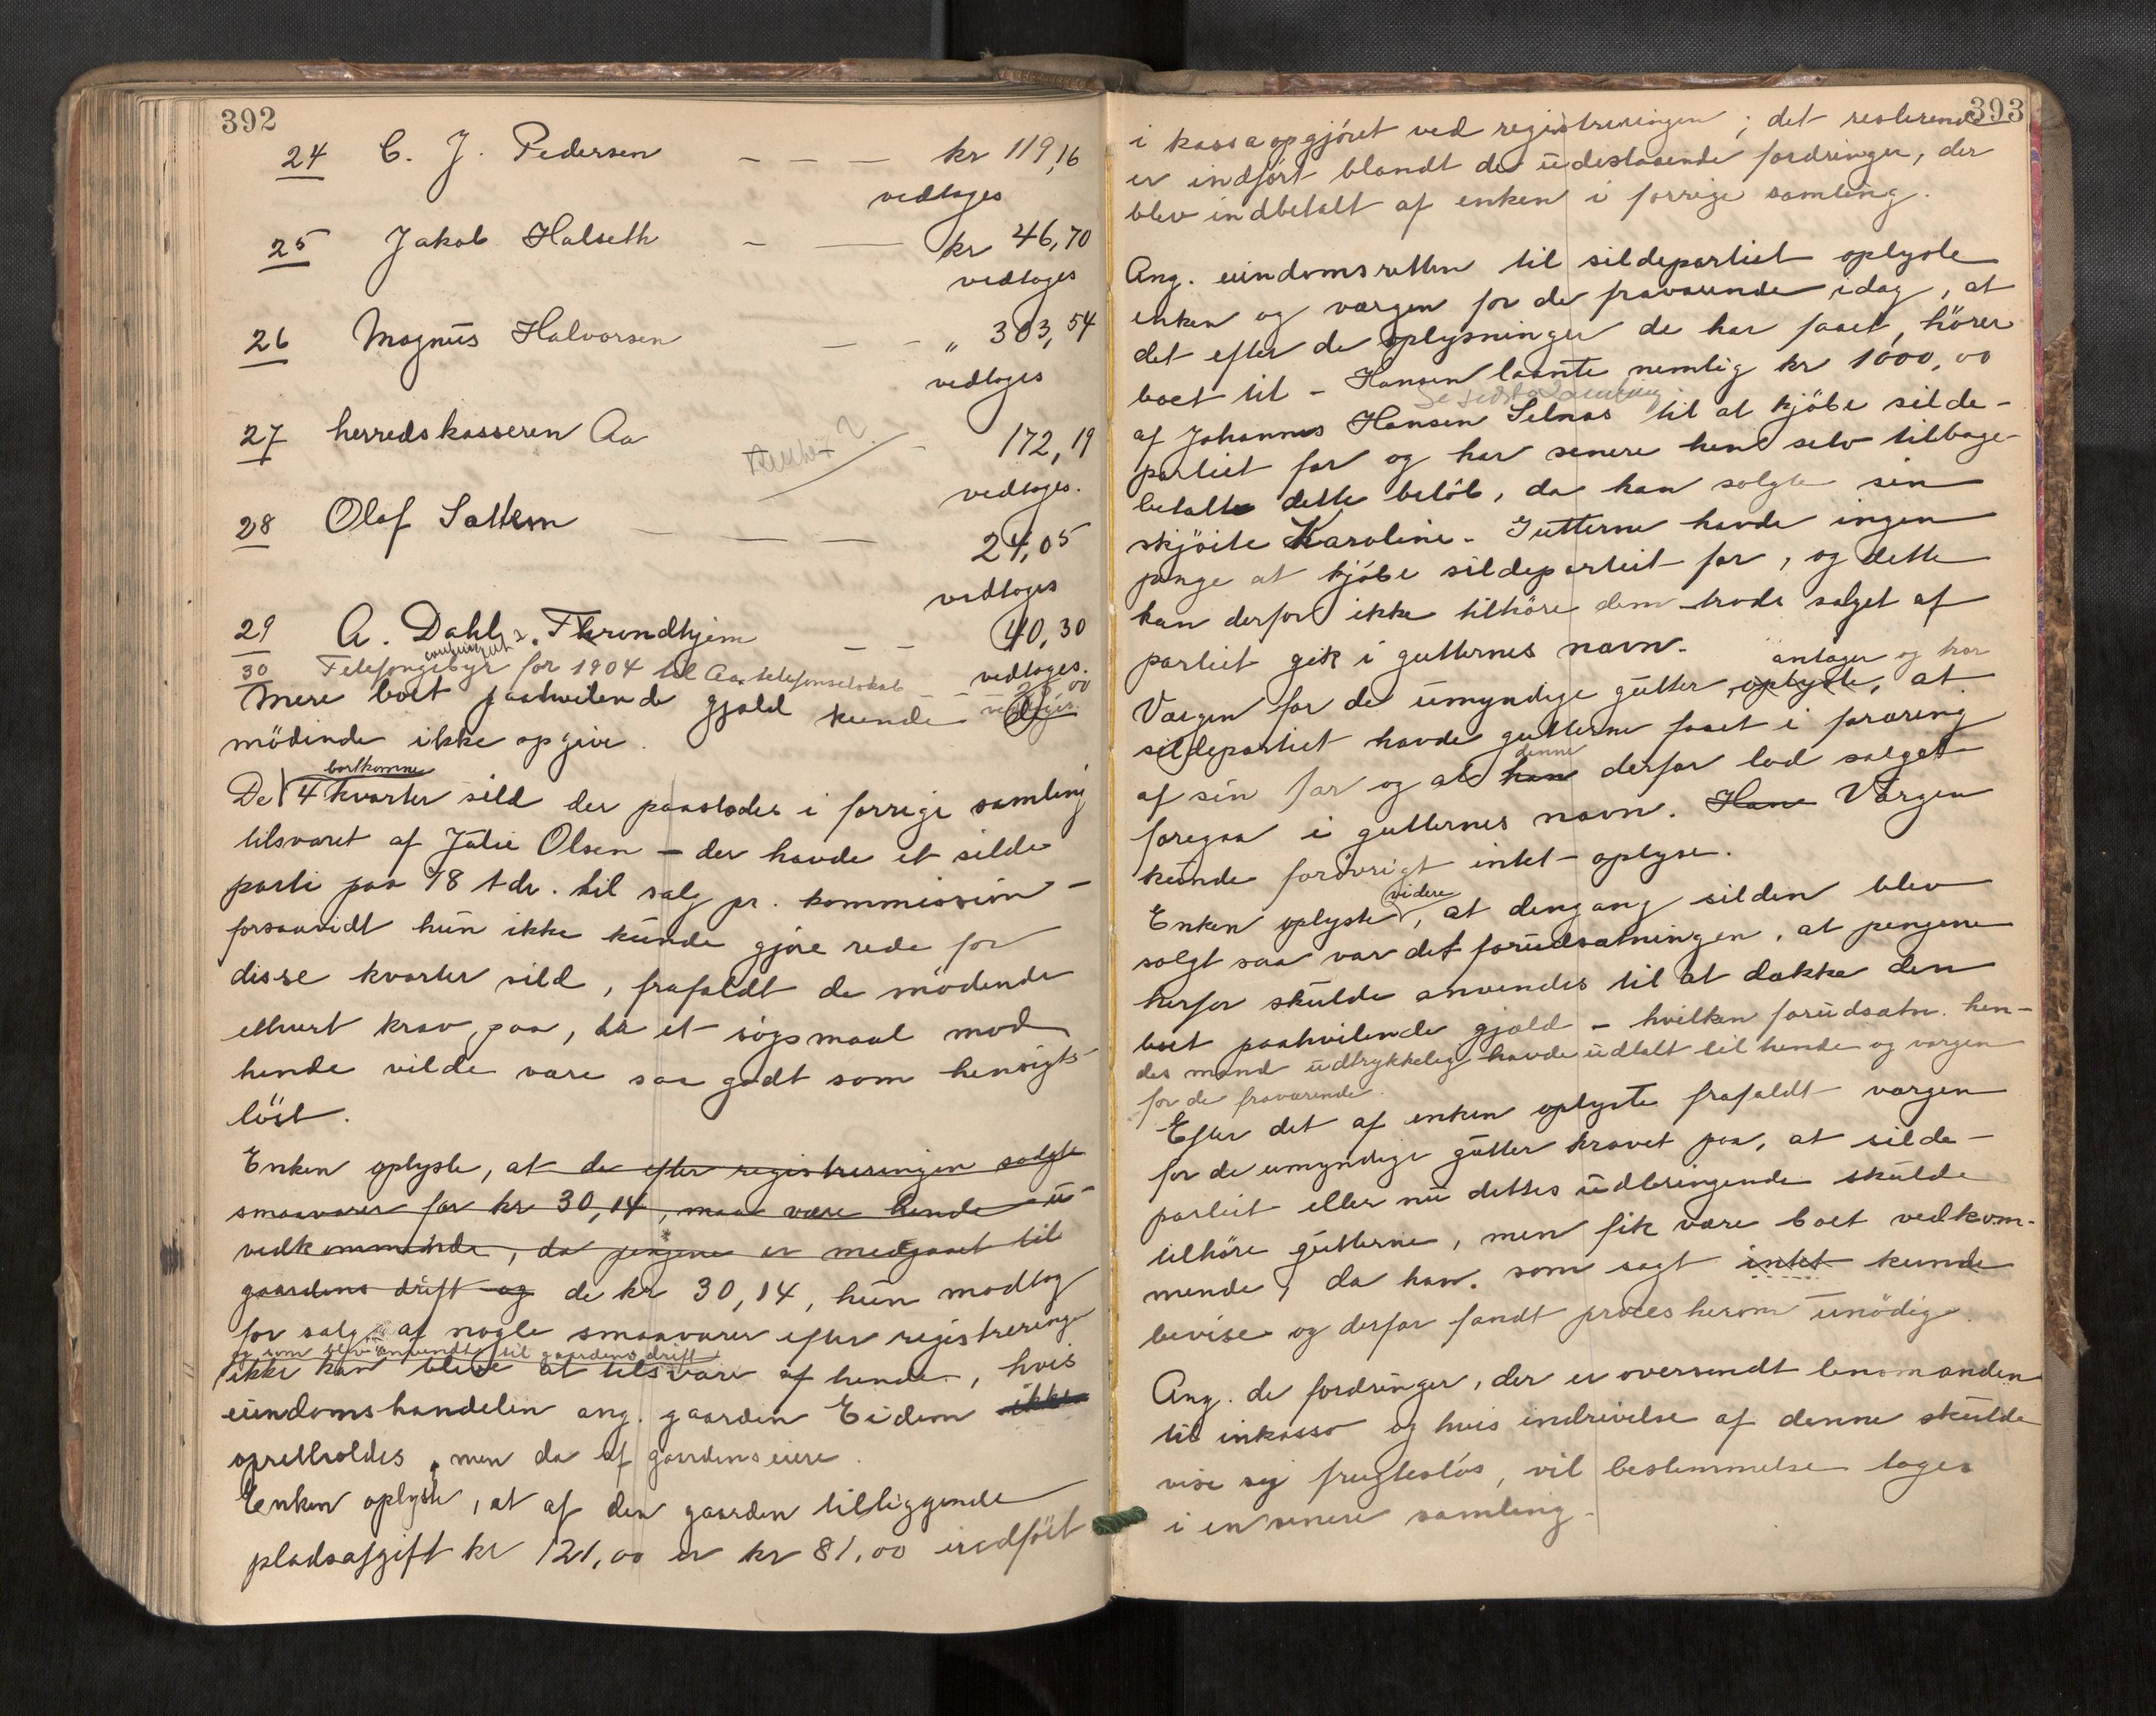 392
24 C. J. Pedersen — — — kr 119,16
vedtages
25 Jakob Halseth — — kr 46,70
vedtages
26 Magnus Halvorsen — - „ 303,54
vedtages
27 herredskasseren Aa - 172,19
vedtages.
28 Olaf Sattem — — — 24,05
vedtages
29 A. Dahls, Throndhjem — — 40,30
vedtages.
30 Telefongebyr for 1904 til Aa telefonselskab
vedtages.
Mere boet paahvilende gjæld kunde de
mödende ikke opgive.
bortkomne
De 4 kvarter sild der paastodes i forrige samling
tilsvaret af Julie Olsen – der havde et silde
parti paa 18 tdr. til salg pr. kommission –
forsaavidt hun ikke kunde gjöre rede for
disse kvarter sild, frafaldt de mödende
ethvert krav paa, da et sögsmaal mod
hende vilde være saa godt som hensigts-
löst.
Enken oplyste, at de efter registreringen solgte
smaavarer for kr 30,14, maa være hende u-
vedkommende, da pengene er medgaaet til
gaardens drift og de kr 30,14, hun modtog
for salg af nogle smaavarer efter registrering
og som blev anvendt til gaardens drift
ikke kan blive at tilsvare af hende, hvis
eiendomshandelen ang. gaarden Eidem ikke
opretholdes, men da af gaardens eiere.
Enken oplyste, at af den gaarden tilliggende
pladsafgift kr 121,00 er kr 81,00 indfört
393
i kassaopgjöret ved registreringen; det resterende
er indfört blandt de udestaaende fordringer, der
blev indbetalt af enken i forrige samling.
Ang. eiendomsretten til sildepartiet oplyste
enken og værgen for de fraværende idag, at
det efter de oplysninger de har faaet, hörer
boet til – Hansen laante nemlig kr 1000,00
se sidste samling
af Johannes Hansen Selnes til at kjöbe silde-
partiet for og har senere hen selv tilbage-
betalt dette belöb, da han solgte sin
skjöite Karoline. Gutterne havde ingen
penge at kjöbe sildepartiet for, og dette
kan derfor ikke tilhöre dem trods salget af
partiet gik i gutternes navn.
antager og har
Værgen for de umyndige gutter, oplyste, at
sildepartiet havde gutterne faaet i foræring
denne
af sin far og at han derfor lod salget
foregaa i gutternes navn. Hans Værgen
kunde forövrigt intet oplyse.
videre
Enken oplyste, at dengang silden blev
solgt saa var det forudsætningen, at pengene
herfor skulde anvendes til at dække den
boet paahvilende gjæld – hvilken forudsætn. hen-
des mand udtrykkelig havde udtalt til hende og værgen
for de fraværende.
Efter det af enken oplyste frafaldt værgen
for de umyndige gutter kravet paa, at silde-
partiet eller nu dettes udbringende skulde
tilhöre gutterne, men fik være boet vedkom-
mende, da han som sagt intet kunde
bevise og derfor fandt proces herom unödig.
Ang. de fordringer, der er oversendt lensmanden
til inkasso og hvis inddrivelse af denne skulde
vise sig frugteslös, vil bestemmelse tages
i en senere samling.